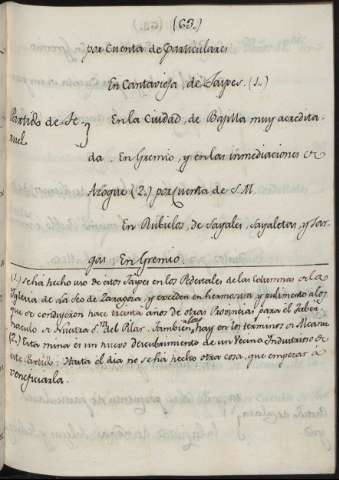 (63.)
por Cuenta de Particulares
En Cantavieja, de Jaspes. (1.)
Partido de Te-
ruel
En la Ciudad, de Bajilla muy acredita-
da. En Gremio, y en las inmediaciones de
Azogue (2.) por cuenta de S.M.
En Rubielos, de Sayales, Sayaletas, y Jar-
gas, En Gremio.
(1.) Se há hecho uso de estos Jaspes en los Pedestales de las Columnas de la
Iglesia de La Seo de Zaragoza, y exceden en hermosura, y pulimento a los
que se condugeron hace treinta años de otras Provincias para el Taber-
naculo de Nuestra Sra. del Pilar. Tambien los hay en los terminos de Alcaine
(2.) Esta mina es un nuevo descubrimiento de un Vecino Industrioso de
este Partido: Hasta el dia no se há hecho otra cosa, que empezar a
veneficiarla.